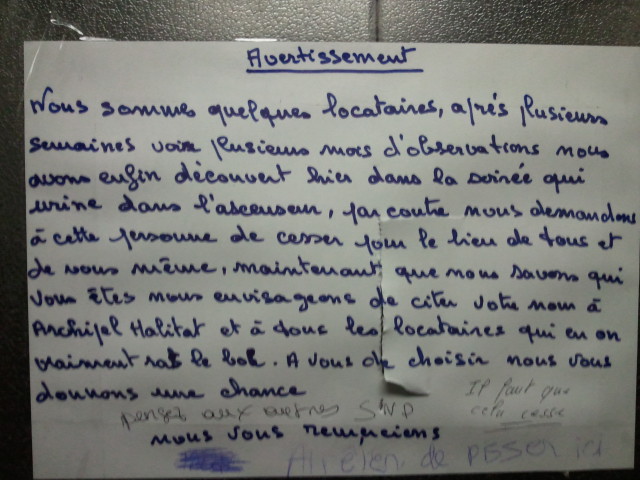 Avertissement
Nous sommes quelques locataires, après plusieurs
semaines voir plusieurs mois d'observations nous
avons enfin découvert hier dans la soirée qui
urine dans l'ascenseur, par contre nous demandons
à cette personne de cesser pour le bien de tous et
de vous même, maintenant que nous savons qui
vous êtes nous envisageons de citer votre nom à
Archipel Habitat et à tous les locataires qui en on
vraiment ras le bol. A vous de choisir nous vous
donnons une chance
pensez aux autres SVP
Il faut que
cela cesse
nous vous remercions
de PISSER ici